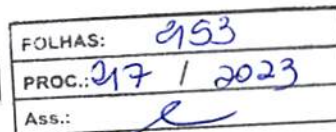 FOLHAS: 2153
PROC.: 217 / 2023
Ass.: